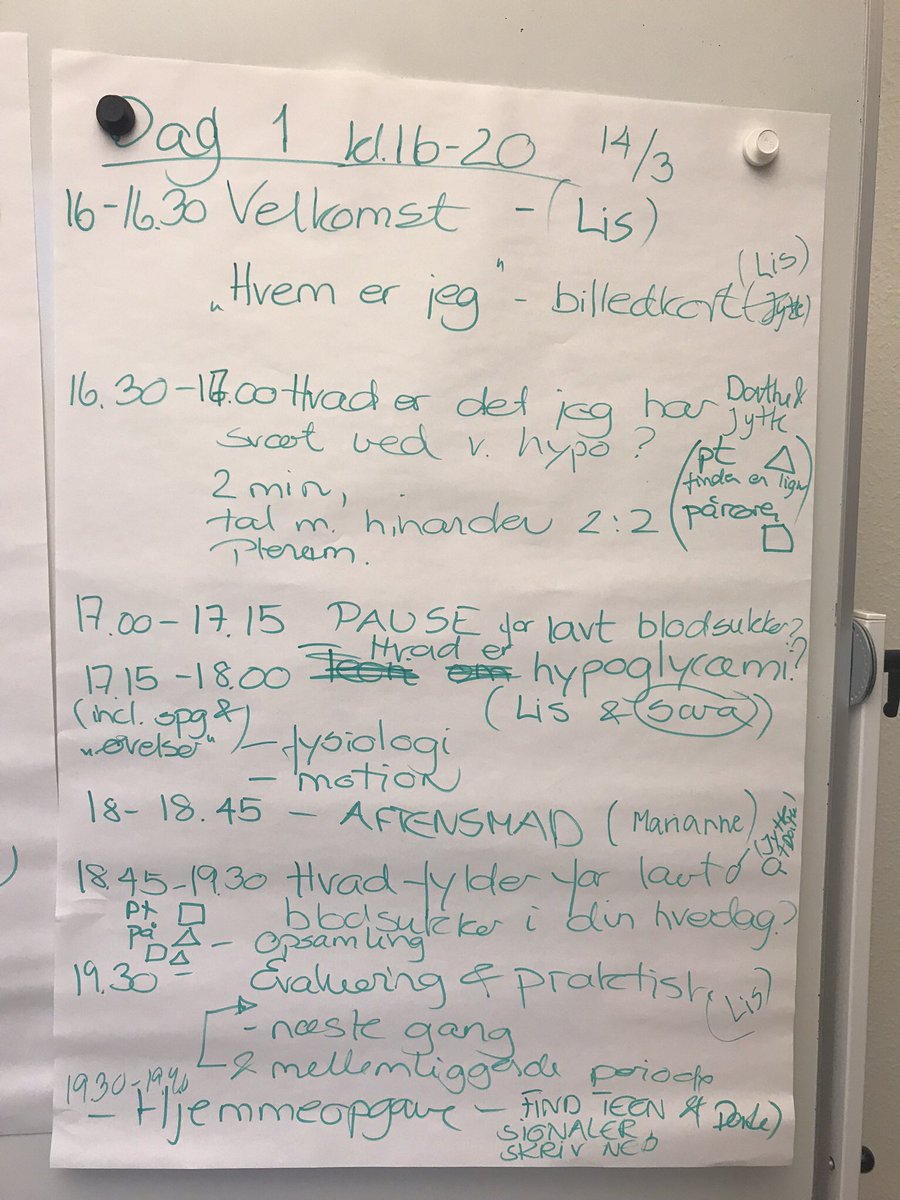 Dag 1 kl.16-20 14/3
16-16.30 Velkomst - (Lis)
(Lis)
„Hvem er jeg" - billedkort (Jytte)
16.30-17.00 Hvad er det jeg har Dorthe &
Jytte
svært ved v. hypo?
(pt
2 min,
finder en lign
tal m. hinanden 2:2
pårøren)
Plenum.
17.00-17.15 PAUSE for lavt blodsukker?
Hvad er
17.15-18.00 hypoglycæmi?
(incl. spg & (Lis & Sara)
„øvelser") - fysiologi
- motion
18-18.45 - AFTENSMAD (Marianne)
18.45-19.30 Hvad fylder for lavt
pt blodsukker i din hverdag?
på - Opsamling
19.30 - Evaluering & praktisk (Lis)
- næste gang
& mellemliggende periode
19.30-19.40
- Hjemmeopgave - FIND TEGN & Dorte)
SIGNALER,
SKRIV NED